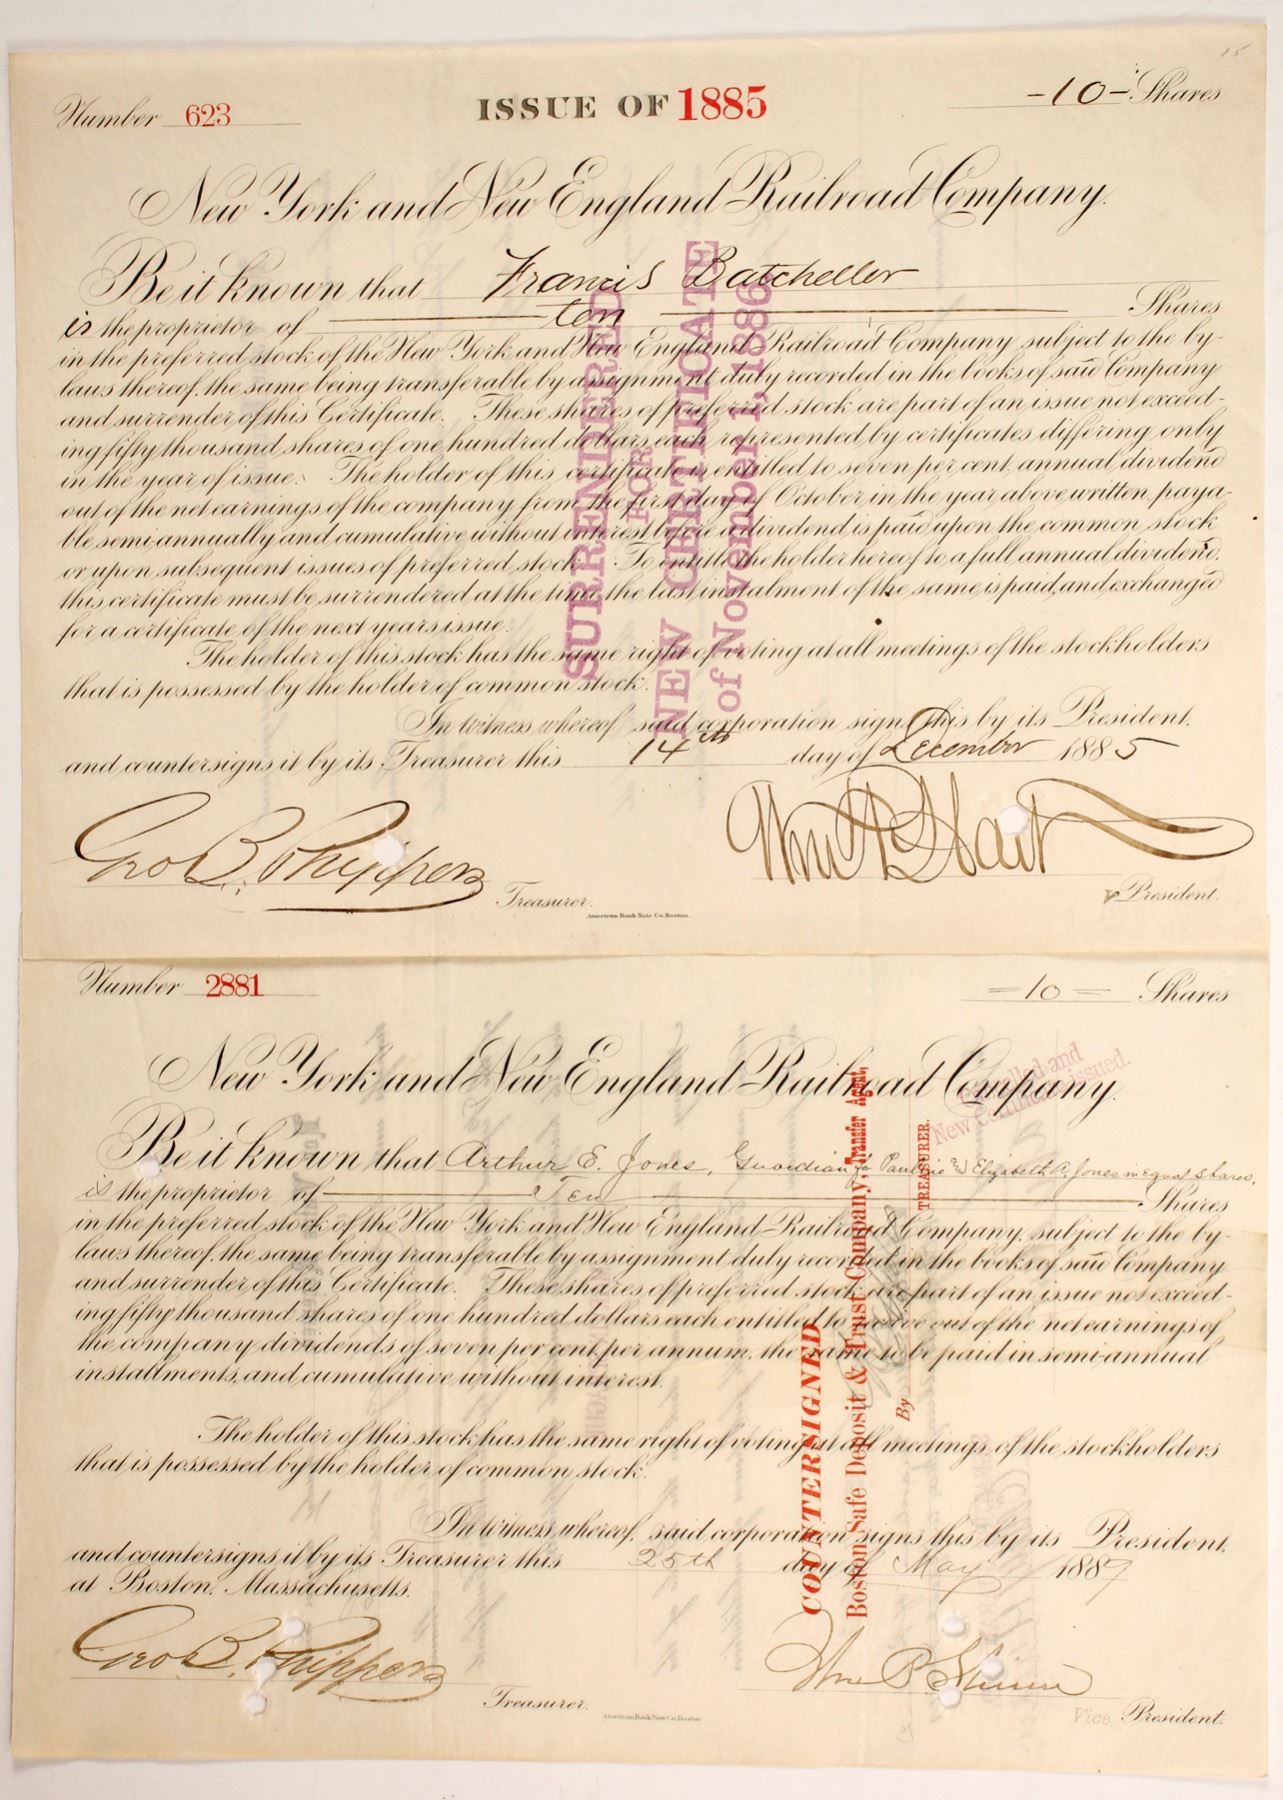 15
Number 623
ISSUE OF 1885
-10- Shares
New York and New England Railroad Company.
Be it known that Francis Batcheller
is the proprietor of ten Shares
in the preferred stock of the New York and New England Railroad Company, subject to the by-
laws thereof, the same being transferable by assignment duly recorded in the books of said Company
and surrender of this Certificate. These shares of preferred stock are part of an issue not exceed-
ing fifty thousand shares of one hundred dollars each, represented by certificates differing only
in the year of issue. The holder of this certificate is entitled to seven per cent. annual dividend
out of the net earnings of the company from the first day of October in the year above written, paya-
ble semi-annually and cumulative without interest before a dividend is paid upon the common stock
or upon subsequent issues of preferred stock. To entitle the holder hereof to a full annual dividend,
this certificate must be surrendered at the time the last instalment of the same is paid, and exchanged
for a certificate of the next years issue.
The holder of this stock has the same right of voting at all meetings of the stockholders
that is possessed by the holder of common stock.
In witness whereof said corporation signs this by its President,
and countersigns it by its Treasurer this 14th day of December 1885
Geo B. Phippen Treasurer.
President.
American Bank Note Co. Boston.
SURRENDERED
FOR
NEW CERTIFICATE
of November 1, 1886
Number 2881
=10= Shares
New York and New England Railroad Company.
Be it known that Arthur E. Jones, Guardian for Pauline and Elizabeth A. Jones in equal shares,
is the proprietor of Ten Shares
in the preferred stock of the New York and New England Railroad Company, subject to the by-
laws thereof, the same being transferable by assignment duly recorded in the books of said Company
and surrender of this Certificate. These shares of preferred stock are part of an issue not exceed-
ing fifty thousand shares of one hundred dollars each entitled to receive out of the net earnings of
the company dividends of seven per cent. per annum, the same to be paid in semi-annual
installments, and cumulative, without interest.
The holder of this stock has the same right of voting at all meetings of the stockholders
that is possessed by the holder of common stock.
In witness whereof, said corporation signs this by its President,
and countersigns it by its Treasurer this 25th day of May 1887
at Boston, Massachusetts.
Geo B. Phippen Treasurer.
Vice President.
American Bank Note Co. Boston
COUNTERSIGNED
Boston Safe Deposit & Trust Company, Transfer Agent,
By TREASURER.
and
New issued.